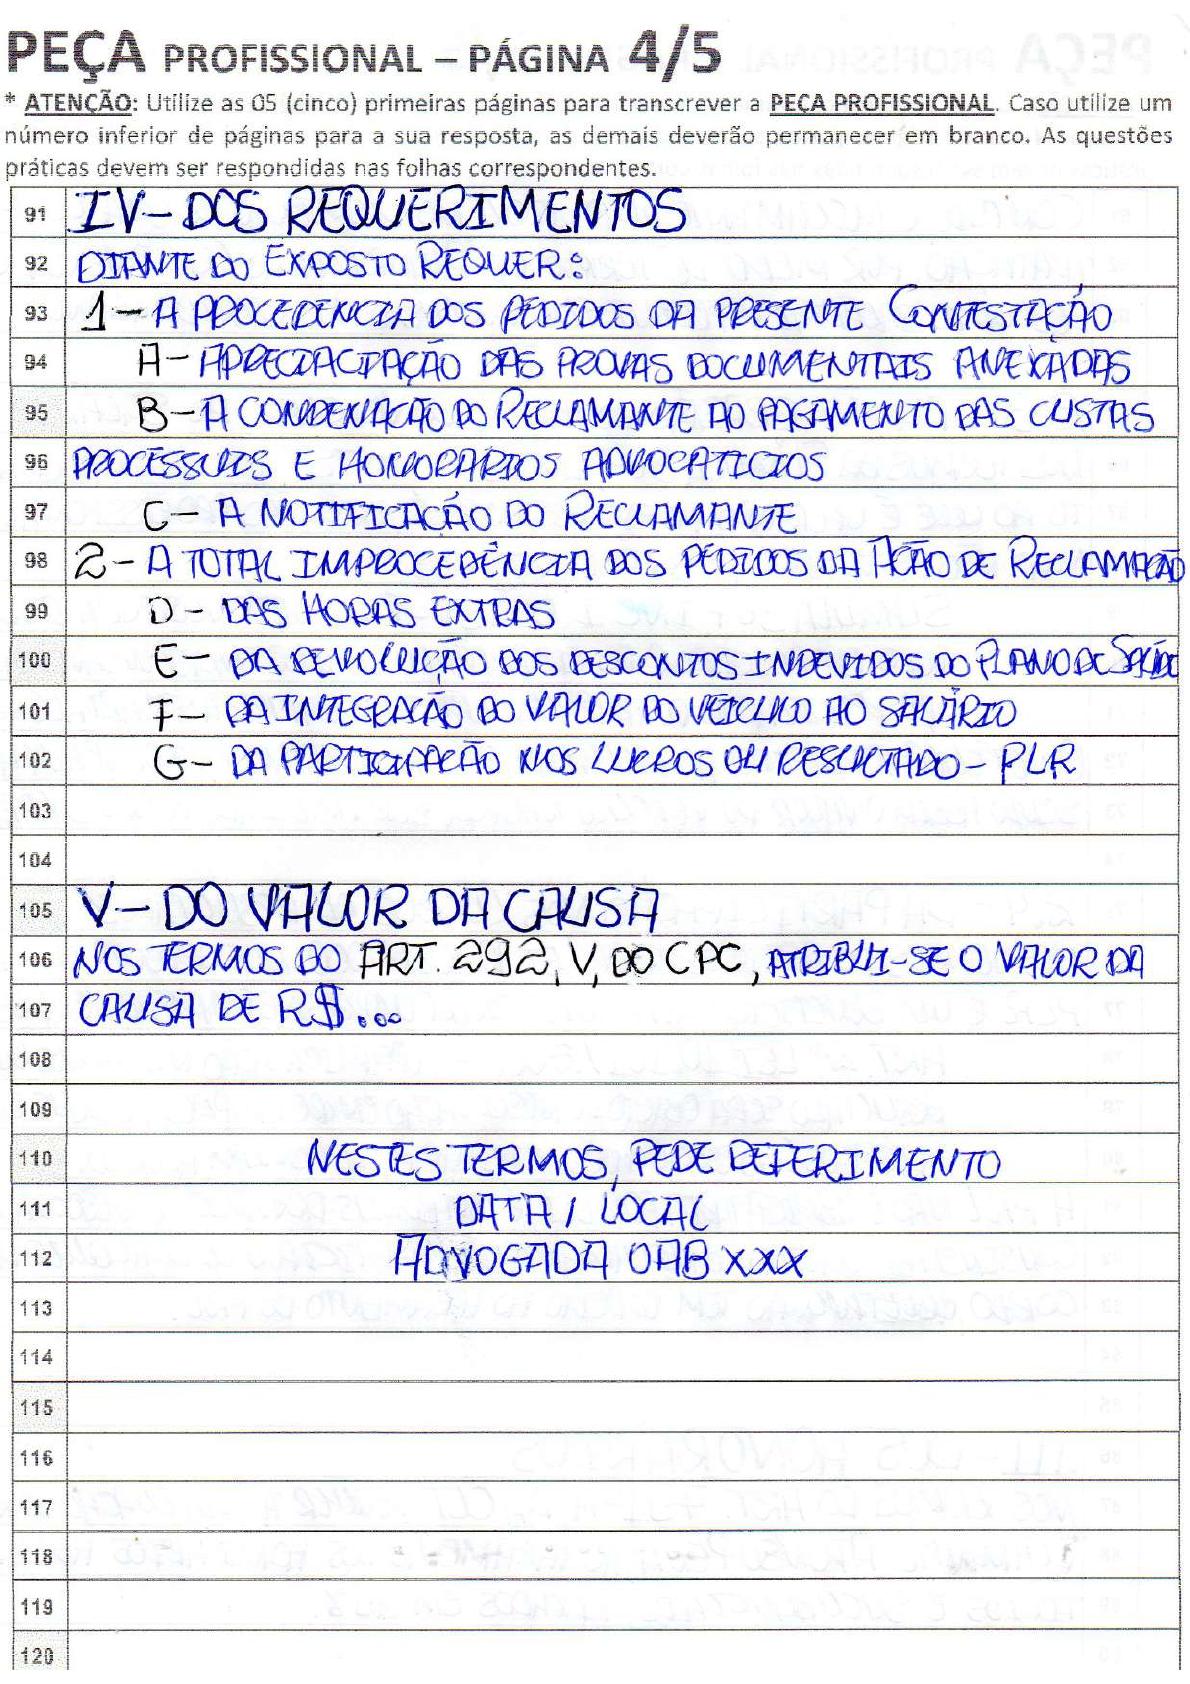 PEÇA PROFISSIONAL – PÁGINA 4/5
* ATENÇÃO: Utilize as 05 (cinco) primeiras páginas para transcrever a PEÇA PROFISSIONAL. Caso utilize um
número inferior de páginas para a sua resposta, as demais deverão permanecer em branco. As questões
práticas devem ser respondidas nas folhas correspondentes.
91 IV- DOS REQUERIMENTOS
92 DIANTE DO EXPOSTO REQUER:
93 1- A PROCEDENCIA DOS PEDIDOS DA PRESENTE CONTESTAÇÃO
94 A- APRECIACIPAÇÃO DAS PROVAS DOCUMENTAIS ANEXADAS
95 B- A CONDENAÇÃO DO RECLAMANTE AO PAGAMENTO DAS CUSTAS
96 PROCESSUIS E HONORÁRIOS ADVOCATICIOS
97 C- A NOTIFICAÇÃO DO RECLAMANTE
98 2- A TOTAL IMPROCEDÊNCIA DOS PEDIDOS DA AÇÃO DE RECLAMAÇÃO
99 D- DAS HORAS EXTRAS
100 E- DA DEVOLUÇÃO DOS DESCONTOS INDEVIDOS DO PLANO DE SAÚDE
101 F- DA INTEGRAÇÃO DO VALOR DO VEÍCULO AO SALÁRIO
102 G- DA PARTICIPAÇÃO NOS LUCROS OU RESULTADO- PLR
103
104
105 V- DO VALOR DA CAUSA
106 NOS TERMOS DO ART. 292, V, DO CPC, ATRIBUI-SE O VALOR DA
107 CAUSA DE R$...
108
109
110 NESTES TERMOS, PEDE DEFERIMENTO
111 DATA / LOCAL
112 ADVOGADA OAB XXX
113
114
115
116
117
118
119
120